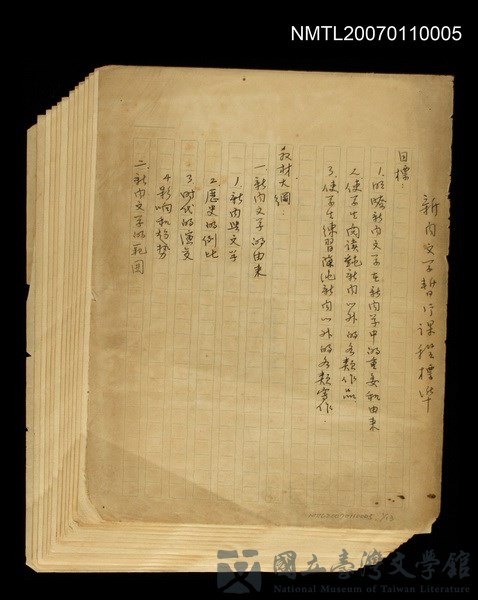 NMTL20070110005
新聞文學暫行課程標準
目標：
1. 明瞭新聞文學在新聞學中的重要和由來
2. 使學生閱讀純新聞以外的各類作品
3. 使學生練習除純新聞以外的各類寫作．
教材大綱：
一、新聞文學的由來
1. 新聞與文學
2. 歷史的例比
3. 時代的演變
4. 影响和趨勢
二、新聞文學的範圍
NMTL20070110005
國立臺灣文學館
National Museum of Taiwan Literature